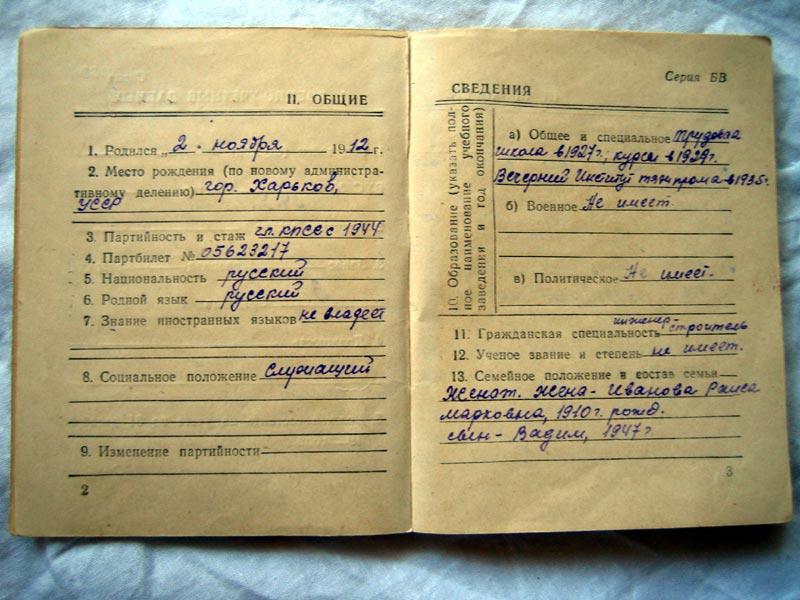 II. ОБЩИЕ
1. Родился „ 2 . ноября 1912 г.
2. Место рождения (по новому административному делению) гор. Харьков,
УССР
3. Партийность и стаж чл. КПСС с 1944
4. Партбилет № 05623217
5. Национальность русский
6. Родной язык русский
7. Знание иностранных языков не владеет
8. Социальное положение Служащий
9. Изменение партийности
2
Серия БВ
СВЕДЕНИЯ
10. Образование (указать полное наименование учебного заведения и год окончания)
а) Общее и специальное Трудовая
школа в 1927 г., курсы в 1929 г.
Вечерний Институт тяжпрома в 1935 г.
б) Военное Не имеет.
в) Политическое Не имеет.
11. Гражданская специальность инженер-строитель
12. Ученое звание и степень не имеет.
13. Семейное положение и состав семьи
Женат. Жена - Иванова Раиса
Марковна, 1910 г. рожд.
сын - Вадим, 1947 г
3